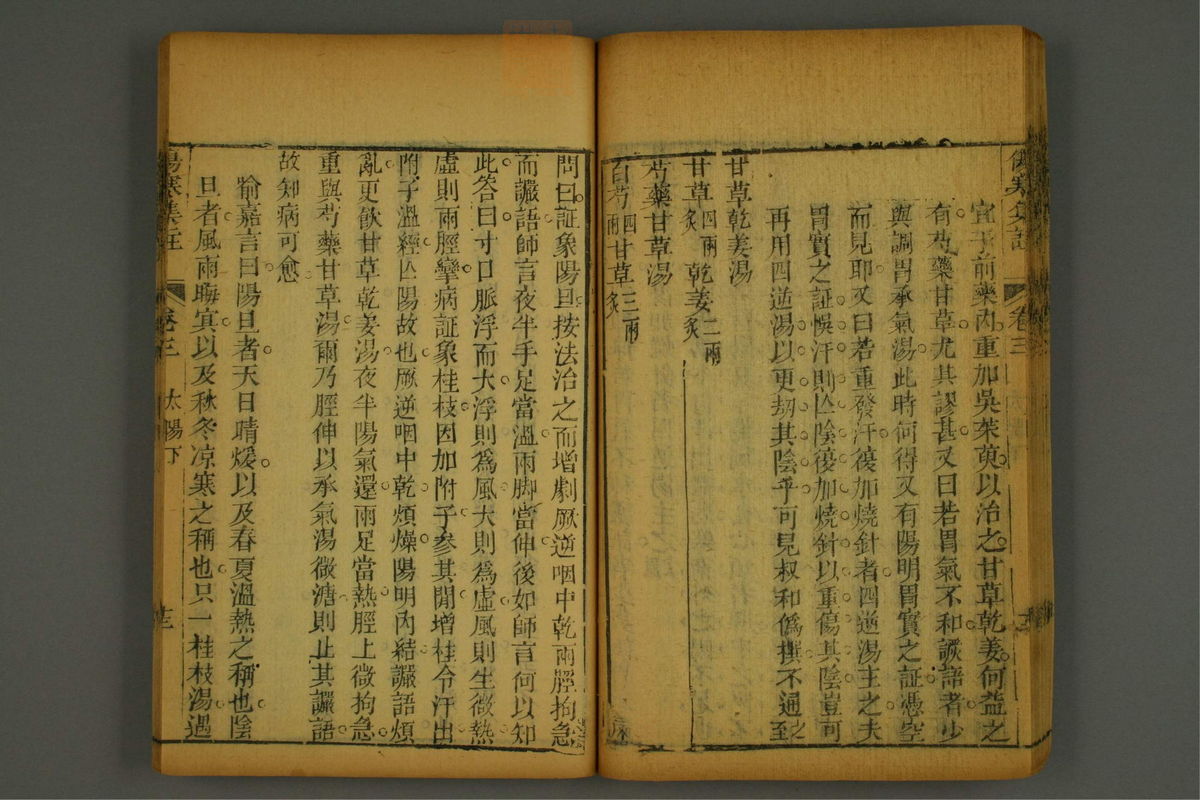 宜于前藥內重加吳茱萸以治之甘草乾姜何益之
有芍藥甘草尤其謬甚又曰若胃氣不和譫語者少
與調胃承氣湯此時何得又有陽明胃實之証憑空
而見耶又曰若重發汗復加燒針者四逆湯主之夫
胃實之証悞汗則亾陰復加燒針以重傷其陰豈可
再用四逆湯以更刼其陰乎可見叔和僞撰不通之至
甘草乾姜湯
甘草四兩炙 乾姜二兩炙
芍藥甘草湯
白芍四兩 甘草三兩炙
問曰証象陽旦按法治之而增劇厥逆咽中乾兩脛拘急
而讝語師言夜半手足當溫兩脚當伸後如師言何以知
此答曰寸口脈浮而大浮則爲風大則爲虛風則生微熱
虛則兩脛攣病証象桂枝因加附子參其間增桂令汗出
附子溫經亾陽故也厥逆咽中乾煩燥陽明內結讝語煩
亂更飲甘草乾姜湯夜半陽氣還兩足當熱脛上微拘急
重與芍藥甘草湯爾乃脛伸以承氣湯微溏則止其讝語
故知病可愈
喻嘉言曰陽旦者天日晴煖以及春夏溫熱之稱也陰
旦者風雨晦冥以及秋冬凉寒之稱也只一桂枝湯過
傷寒集註 卷三 太陽下